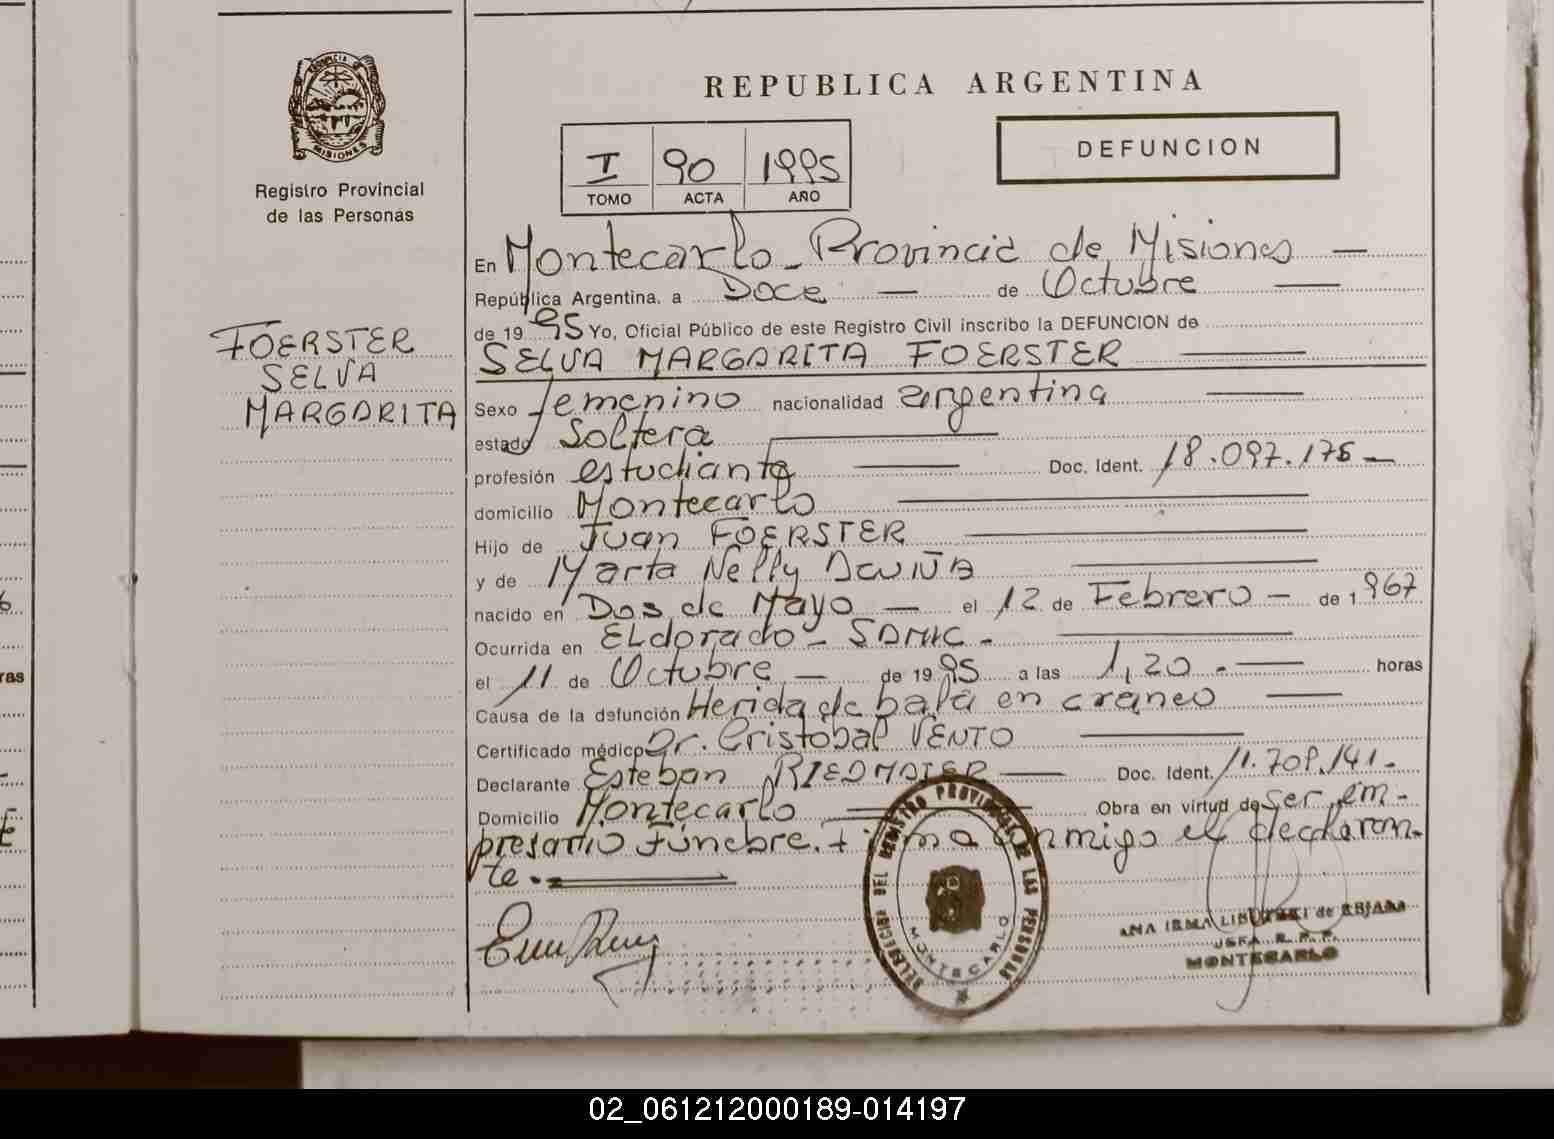 REPUBLICA ARGENTINA
PROVINCIA DE
MISIONES
Registro Provincial
de las Personas
DEFUNCION
I 90 1995
TOMO ACTA AÑO
En Montecarlo - Provincia de Misiones —
República Argentina, a Doce — de Octubre —
de 19 95 Yo, Oficial Público de este Registro Civil inscribo la DEFUNCION de
SELVA MARGARITA FOERSTER —
FOERSTER
SELVA
MARGARITA
Sexo femenino nacionalidad argentina —
estado Soltera —
profesión estudiante — Doc. Ident. 18.097.176 -
domicilio Montecarlo —
Hijo de Juan FOERSTER —
y de Marta Nelly ACUÑA —
nacido en Dos de Mayo — el 12 de Febrero - de 1 967
Ocurrida en ELdorado - SAMIC - —
el 11 de Octubre — de 19 95 a las 1,20 - — horas
Causa de la defunción Herida de bala en craneo —
Certificado médico Dr. Cristobal VENTO —
Declarante Esteban RIEDMAIER — Doc. Ident. 11.708.141 -
Domicilio Montecarlo — Obra en virtud de ser em-
presario Fúnebre. Firma conmigo el declaran-
te. —
DELEGACION DEL REGISTRO PROVINCIAL DE LAS PERSONAS
MONTECARLO
ANA IRMA de
JEFA R. P. P.
MONTECARLO
02_061212000189-014197